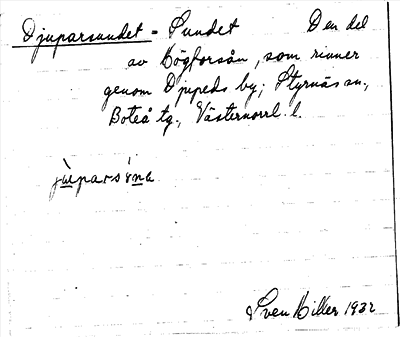 Djuparsundet = Sundet Den del
av Högforsån, som rinner
genom Djupeds by; Styrnäs sn,
Boteå tg., Västernorrl. l.
Sven Hiller 1932